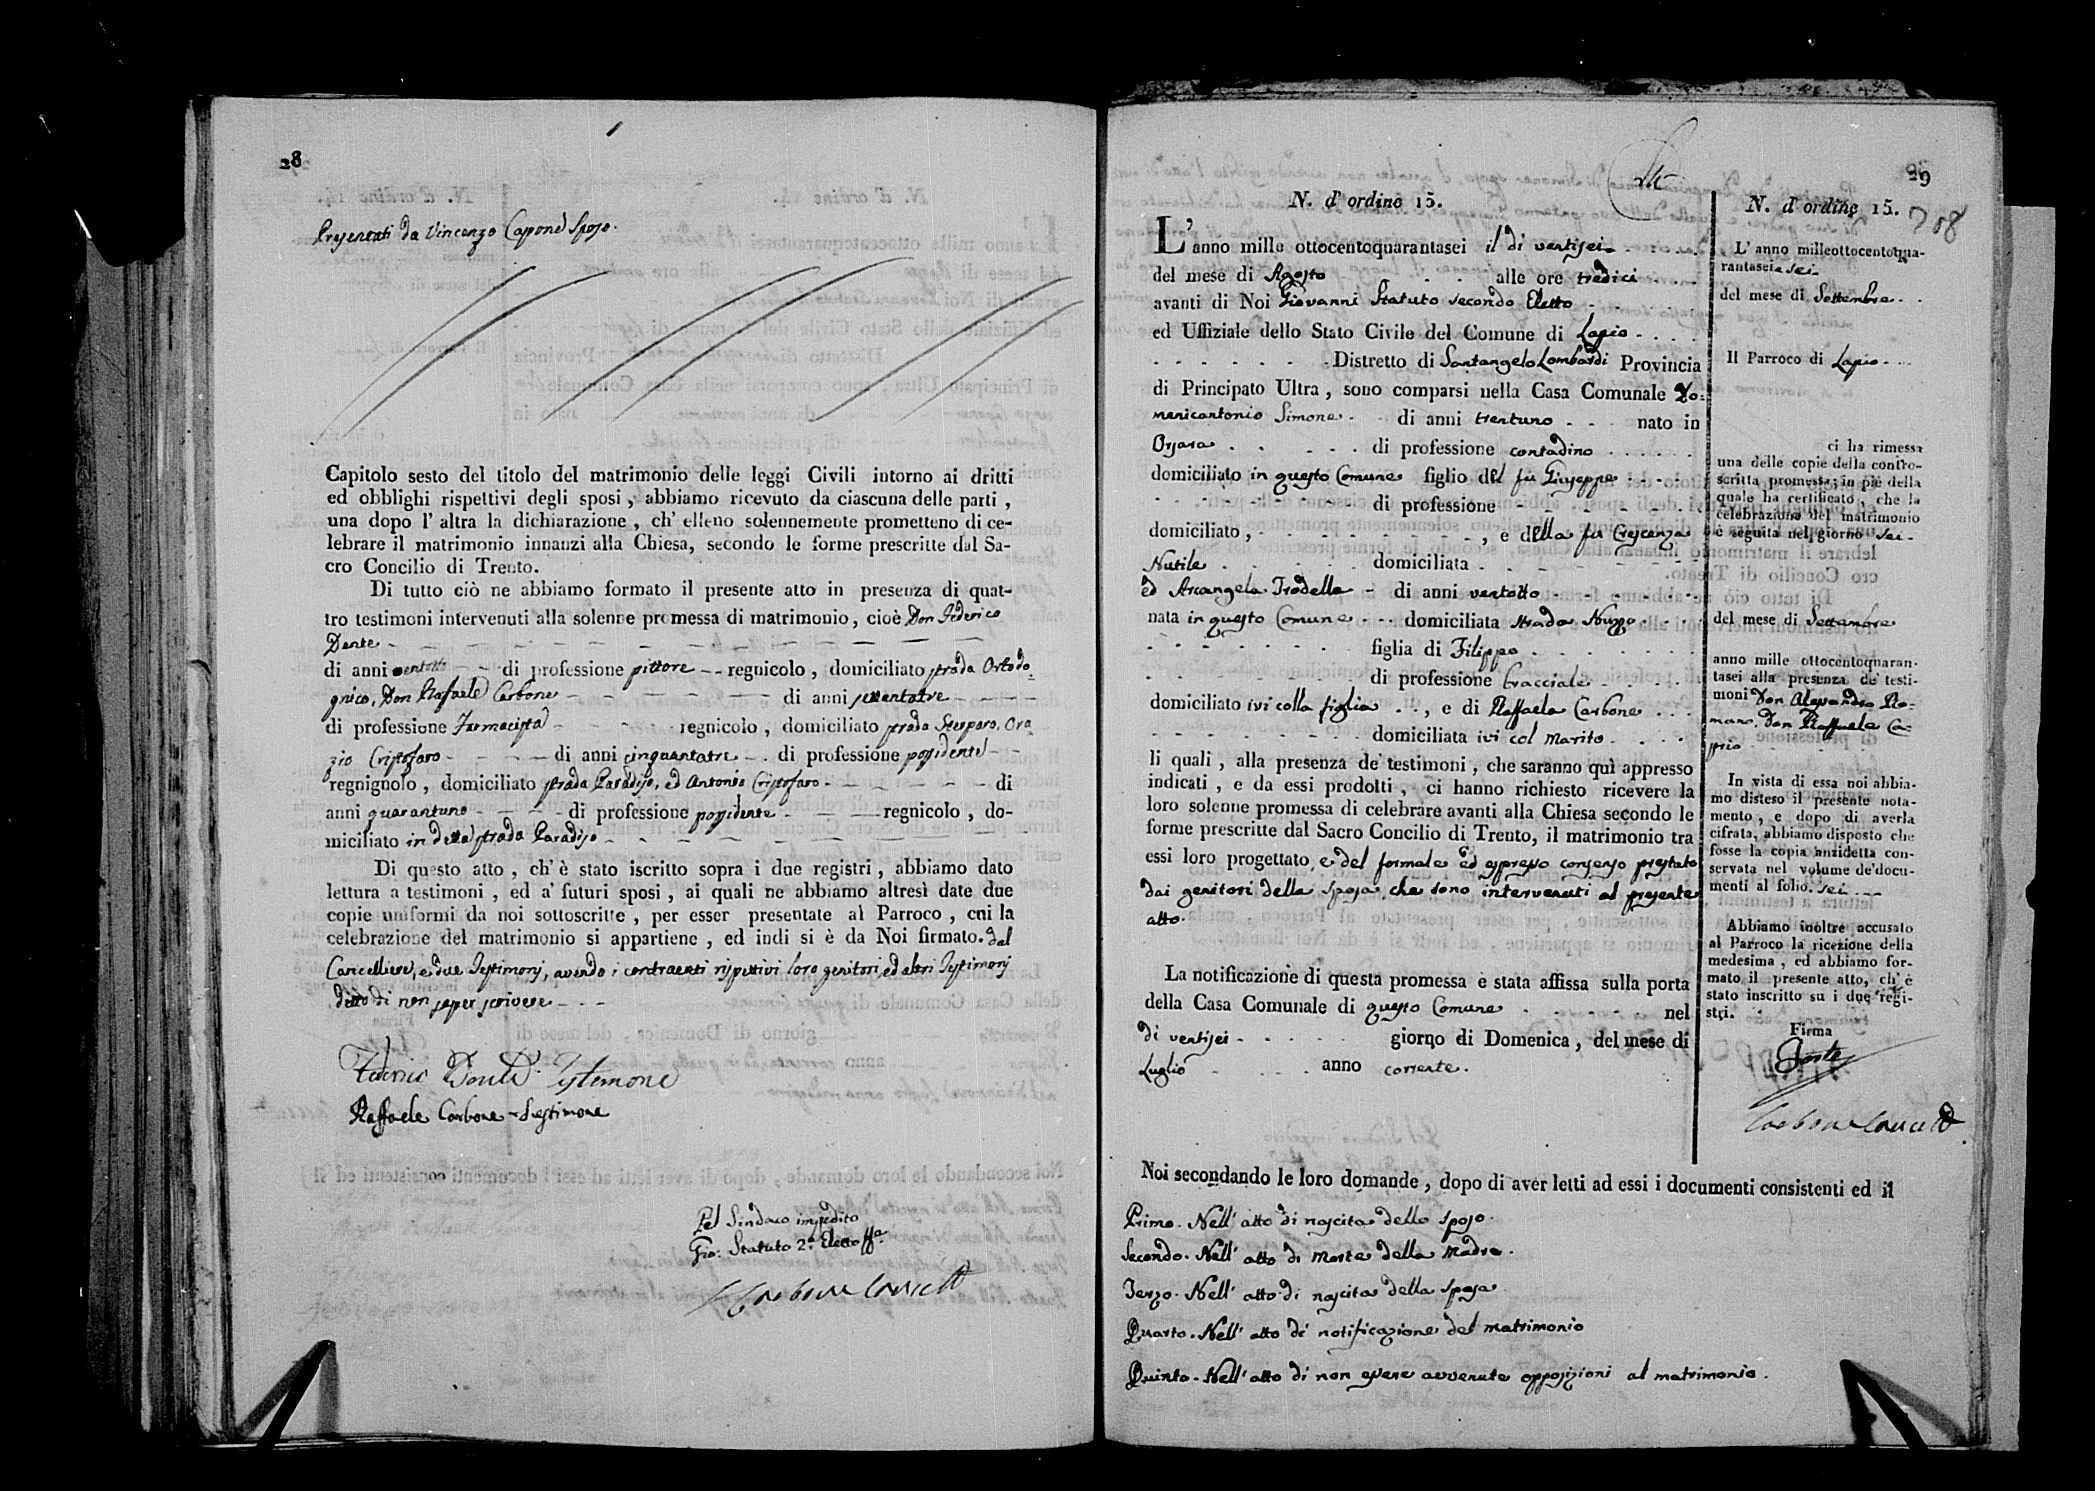 28
Presentati da Vincenzo Capone Sposo.
Capitolo sesto del titolo del matrimonio delle leggi Civili intorno ai dritti
ed obblighi rispettivi degli sposi , abbiamo ricevuto da ciascuna delle parti ,
una dopo l' altra la dichiarazione , ch' elleno solennemente promettono di ce-
lebrare il matrimonio innanzi alla Chiesa, secondo le forme prescritte dal Sa-
cro Concilio di Trento.
Di tutto ciò ne abbiamo formato il presente atto in presenza di quat-
tro testimoni intervenuti alla solenne promessa di matrimonio, cioè Don Federico
Dente
di anni ventotto di professione pittore regnicolo, domiciliato strada Ortodo=
gnico, Don Raffaele Carbone di anni settantatre
di professione Farmacista regnicolo, domiciliato strada Ora
zio Cristofaro di anni cinquantatre di professione possidente
regnignolo, domiciliato strada Paradiso, ed Antonio Cristofaro di
anni quarantuno di professione possidente regnicolo, do-
miciliato in detta strada Paradiso
Di questo atto , ch' è stato iscritto sopra i due registri , abbiamo dato
lettura a testimoni , ed a' futuri sposi , ai quali ne abbiamo altresì date due
copie uniformi da noi sottoscritte , per esser presentate al Parroco , cui la
celebrazione del matrimonio si appartiene , ed indi si è da Noi firmato. dal
Cancelliere, e due Testimonj, avendo i contraenti rispettivi loro genitori, ed altri Testimonj
detto di non saper scrivere
Testimone
Raffaele Carbone Testimone
Pel Sindaco impedito
Gio: Statuto 2.° Eletto
Carbone Canc
29
N. d' ordine 15.
L' anno mille ottocentoquarantasei il dì ventisei
del mese di Agosto alle ore tredici
avanti di Noi Giovanni Statuto secondo Eletto
ed Uffiziale dello Stato Civile del Comune di Lapio
Distretto di Santangelo Lombardi Provincia
di Principato Ultra , sono comparsi nella Casa Comunale Do=
menicantonio Simone di anni trentuno nato in
Orsara di professione contadino
domiciliato in questo Comune figlio del fu Giuseppe
di professione
domiciliato , , e della fu Crescenza
Nutile domiciliata
ed Arcangela Trodella di anni ventotto
nata in questo Comune domiciliata strada Nuzzo
figlia di Filippo
di professione bracciale
domiciliato ivi colla figlia , e di Raffaela Carbone
domiciliata ivi col marito
li quali , alla presenza de' testimoni , che saranno quì appresso
indicati , e da essi prodotti , ci hanno richiesto ricevere la
loro solenne promessa di celebrare avanti alla Chiesa secondo le
forme prescritte dal Sacro Concilio di Trento, il matrimonio tra
essi loro progettato, e del formale ed espresso consenso prestato
dai genitori della sposa che sono intervenuti al presente
atto.
La notificazione di questa promessa è stata affissa sulla porta
della Casa Comunale di questo Comune nel
dì ventisei giorno di Domenica , del mese di
Luglio anno corrente.
N. d' ordine 15.
L' anno milleottocentoqua-
rantasei sei
del mese di Settembre
Il Parroco di Lapio
ci ha rimessa
una delle copie della contro-
scritta promessa; in piè della
quale ha certificato , che la
celebrazione del matrimonio
è seguita nel giorno sei
del mese di Settembre
anno mille ottocentoquaran-
tasei alla presenza de' testi-
moni Don Alessandro Ro=
mano. Don Raffaele Ca=
prio
In vista di essa noi abbia-
mo disteso il presente nota-
mento , e dopo di averla
cifrata, abbiamo disposto che
fosse la copia anzidetta con-
servata nel volume de'docu-
menti al folio. sei
Abbiamo inoltre accusato
al Parroco la ricezione della
medesima , ed abbiamo for-
mato il presente atto, ch' è
stato inscritto su i due regi-
stri.
Firma
Carbone Canc
Noi secondando le loro domande , dopo di aver letti ad essi i documenti consistenti ed il
Primo. Nell' atto di nascita dello sposo.
Secondo. Nell' atto di morte della madre.
Terzo. Nell' atto di nascita della sposa
Quarto. Nell' atto di notificazione del matrimonio
Quinto. Nell' atto di non essere avvenute opposizioni al matrimonio.